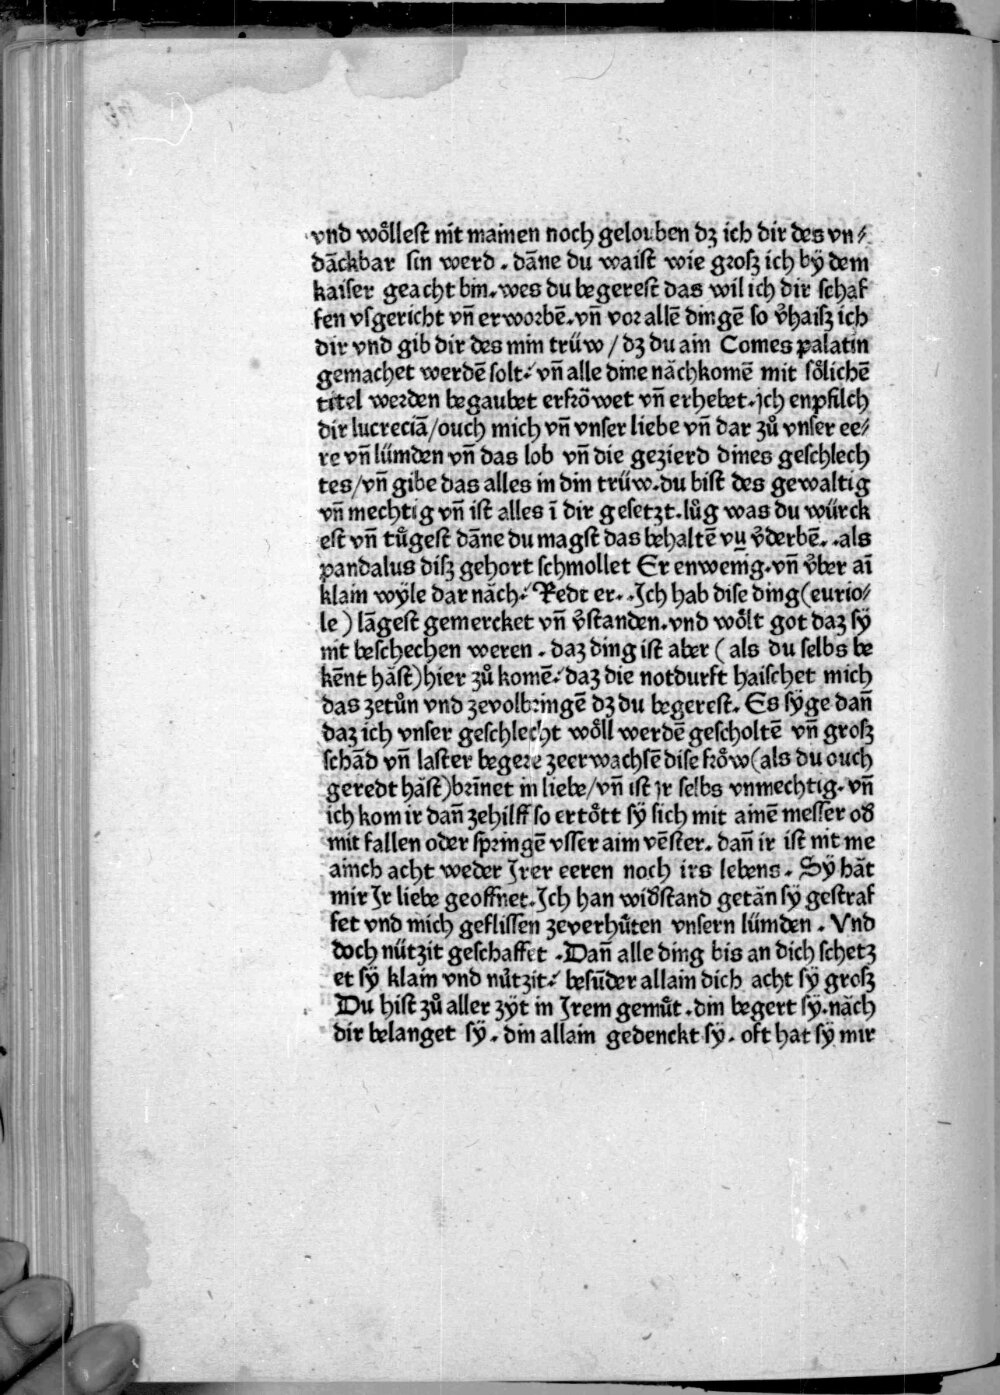 vnd woͤllest nit mainen noch gelouben dz ich dir des vn⸗
dāckbar sin werd . dāne du waist wie grosz ich bÿ dem
kaiser geacht bin. wes du begerest das wil ich dir schaf
fen vsgericht vn̄ erworbē. vn̄ vor allē dingē so v̓haisz ich
dir vnd gib dir des min trüw / dz du ain Comes palatin
gemachet werdē solt. vn̄ alle dine nāchkomē mit soͤlichē
titel werden begaubet erfroͤwet vn̄ erhebet. ich enpfilch
dir lucreciā/ouch mich vn̄ vnser liebe vn̄ dar zuͦ vnser ee⸗
re vn̄ lümden vn̄ das lob vn̄ die gezierd dines geschlech
tes/vn̄ gibe das alles in din trüw. du bist des gewaltig
vn̄ mechtig vn̄ ist alles ī dir gesetzt. luͦg was du würck
est vn̄ tuͤgest dāne du magst das behaltē vn̄ v̓derbē. . als
pandalus disz gehort schmollet Er enwenig. vn̄ v̓ber aī
klain wÿle dar nāch. Redt er. . Ich hab dise ding(eurio⸗
le) lāgest gemercket vn̄ v̓standen. vnd woͤlt got daz sÿ
nit beschechen weren . daz ding ist aber ( als du selbs be
kēnt hāst)hier zuͦ komē. daz die notdurft haischet mich
das zetuͦn vnd zevolbringē dz du begerest. Es sÿge dan̄
daz ich vnser geschlecht woͤll werdē gescholtē vn̄ grosz
schād vn̄ laster begere zeerwachsē dise froͤw(als du ouch
geredt hāst)brīnet in liebe/vn̄ ist ir selbs vnmechtig. vn̄
ich kom ir dan̄ zehilff so ertoͤtt sÿ sich mit ainē messer od̓
mit fallen oder springē vsser aim vēster. dan̄ ir ist nit me
ainch acht weder Irer eeren noch irs lebens . Sÿ hāt
mir Ir liebe geoffnet. Ich han wid̓stand getān sÿ gestraf
fet vnd mich geflissen zeverhuͤten vnsern lümden . Vnd
doch nützit geschaffet . Dan̄ alle ding bis an dich schetz
et sÿ klain vnd nützit. besūder allain dich acht sÿ grosz
Du bist zuͦ aller zÿt in Irem gemuͤt. din begert sÿ. nāch
dir belanget sÿ. din allain gedenckt sÿ. oft hat sÿ mir